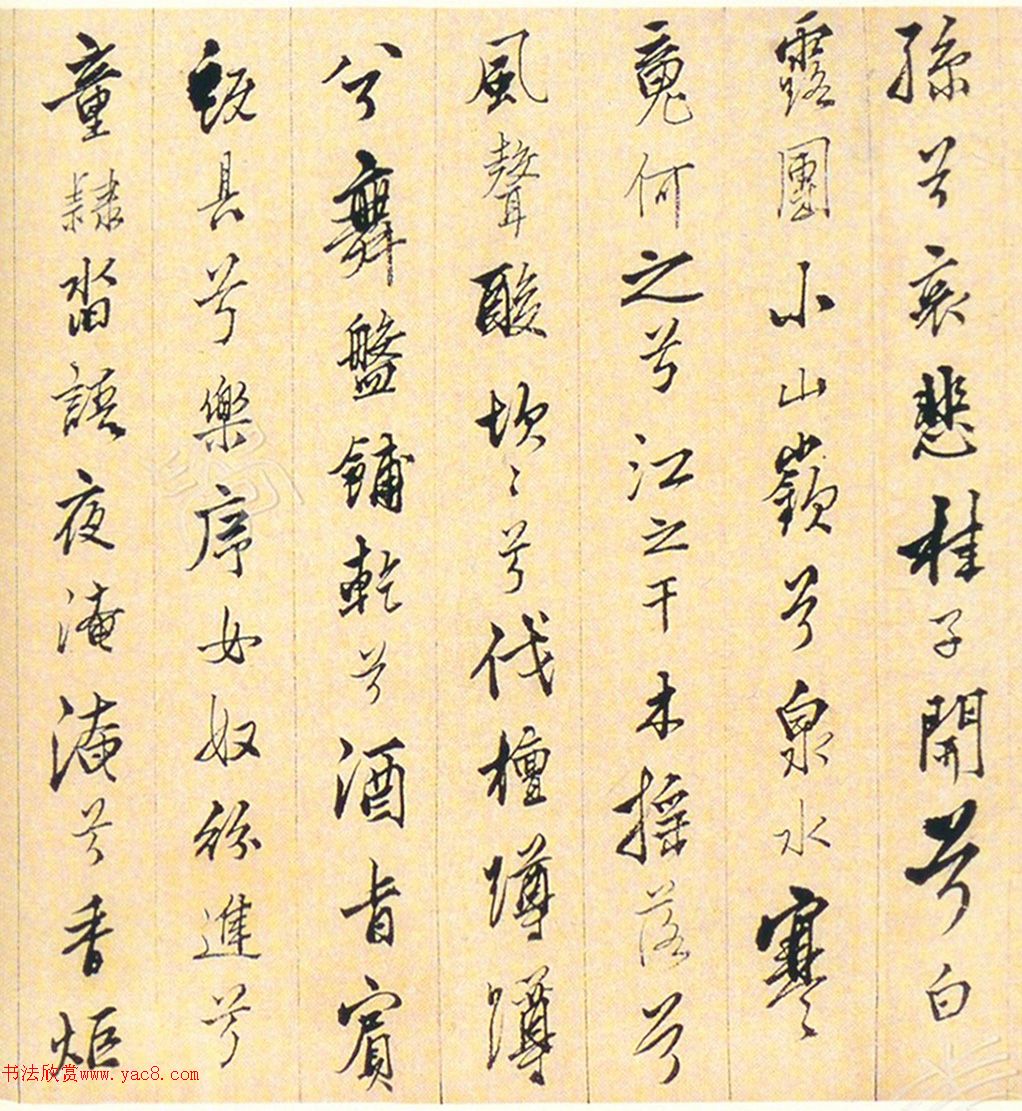 孫兮哀悲桂子開兮白
露團小山巔兮泉水寒
竟何之兮江之干木摇落兮
風聲酸坎〻兮伐檀蹲蹲
兮舞盤鋪乾兮酒旨賓
既具兮樂序女奴紛進兮
童隸沓語夜淹淹兮香炬
书法欣赏www.yac8.com